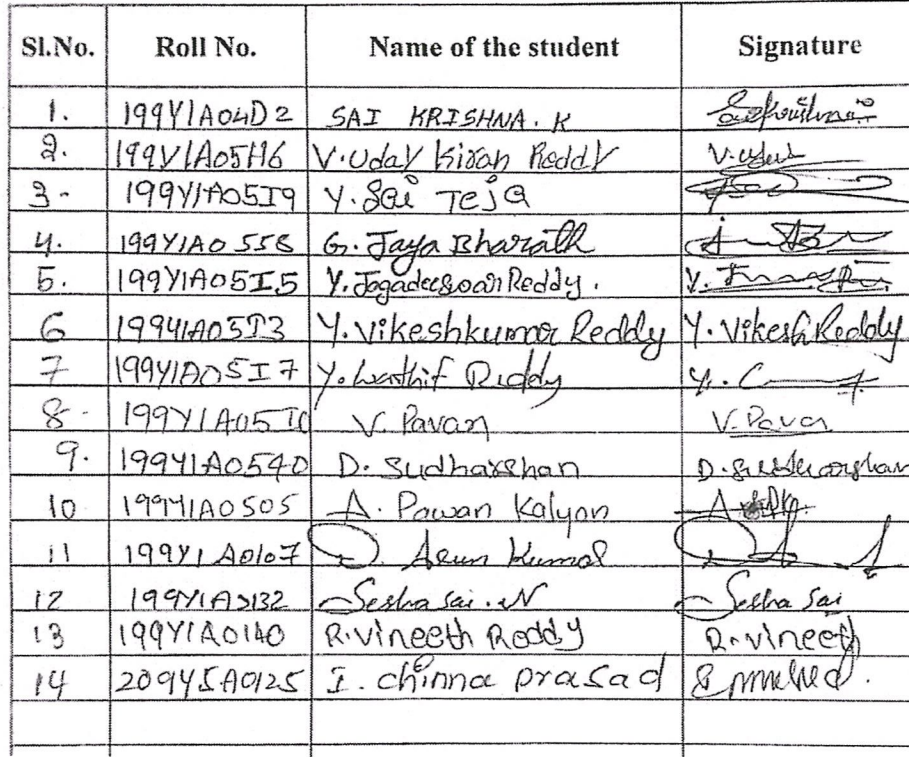 Sl.No. Roll No. Name of the student Signature
1. 199Y1A04D2 SAI KRISHNA. K Saikrishna
2. 199Y1A05H6 V. Uday Kiran Reddy V. Uday
3. 199Y1A05I9 Y. Sai Teja
4. 199Y1A0558 G. Jaya Bharath
5. 199Y1A05I5 Y. Jagadeeswar Reddy. Y.
6 199Y1A05I3 Y. Vikeshkumar Reddy Y. Vikesh Reddy
7 199Y1A05I7 Y. Reddy Y.
8. V. Pavan V. Pavan
9. 199Y1A0540 D. Sudharshan D. Sudharshan
10 199Y1A0505 A. Pawan Kalyan A
11 199Y1A0107 D. Arun Kumar
12 199Y1A0132 Sesha Sai. N Sesha Sai
13 199Y1A0140 R. Vineeth Reddy R. Vineeth
14 209Y5A0125 I. chinna prasad